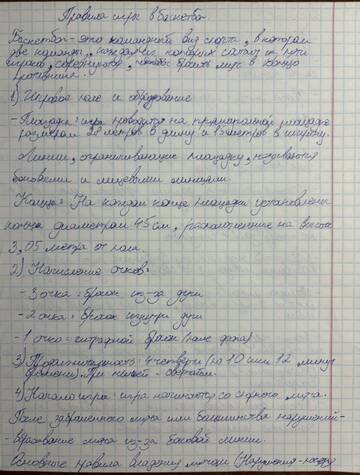 Правила игры в баскетбол
Баскетбол - это командный вид спорта, в котором
две команды, каждая из которых состоит из пяти
игроков, соревнуются, бросить мяч в кольцо
противника.
1) Игровое поле и оборудование
- Площадка: игра проводится на прямоугольной площадке
размером 28 метров в длину и 15 метров в ширину.
Линии, ограничивающие площадку, называются
боковыми и лицевыми линиями.
Кольца: На каждом конце площадки установлены
кольца диаметром 45 см, расположенные на высоте
3,05 метра от пола.
2) Начисление очков:
- 3 очка: бросок из-за дуги
- 2 очка: бросок изнутри дуги
- 1 очко: штрафной бросок (после фола)
3) Продолжительность: 4 четверти (по 10 или 12 минут
). При ничьей - овертайм.
4) Начало игры: игра начинается со спорного мяча.
После заброшенного мяча или большинства нарушений -
вбрасывание мяча из-за боковой линии.
Основные правила владения мячом (Нарушения -